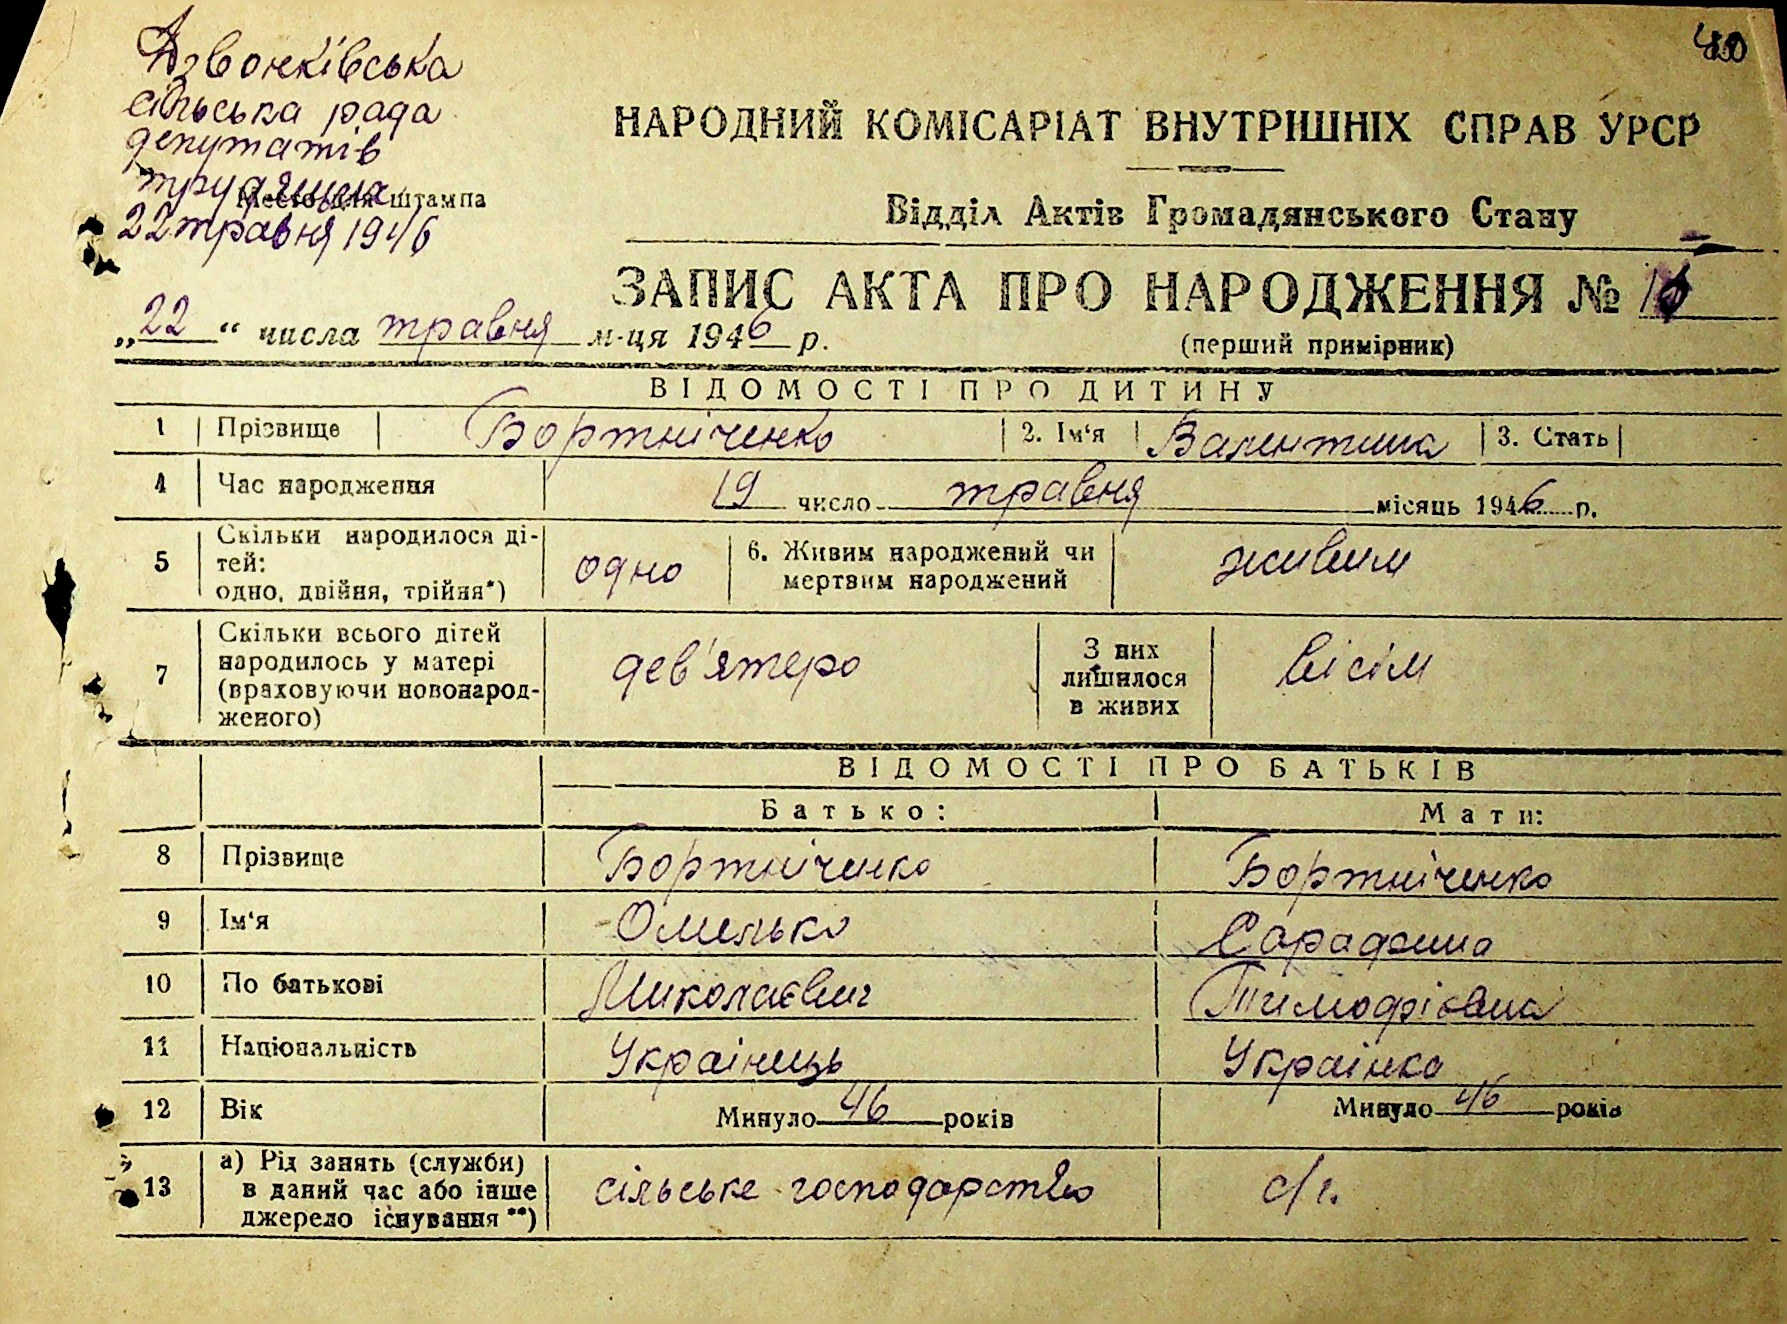 Дзвонківська
сільська рада
депутатів
трудящих
Место для штампа
22 травня 1946
40
НАРОДНИЙ КОМІСАРІАТ ВНУТРІШНІХ СПРАВ УРСР
Відділ Актів Громадянського Стану
ЗАПИС АКТА ПРО НАРОДЖЕННЯ № 16
„22“ числа травня м-ця 1946 р.
(перший примірник)
ВІДОМОСТІ ПРО ДИТИНУ
1 Прізвище Бортніченко 2. Ім‘я Валентина 3. Стать
4 Час народження 19 число травня місяць 1946 р.
5 Скільки народилося ді-
тей:
одно, двійня, трійня*) одно 6. Живим народжений чи
мертвим народжений живим
7 Скільки всього дітей
народилось у матері
(враховуючи новонарод-
женого) дев'ятеро З них
лишилося
в живих вісім
ВІДОМОСТІ ПРО БАТЬКІВ
Батько: Мати:
8 Прізвище Бортніченко Бортніченко
9 Ім‘я Омелько Сарафина
10 По батькові Миколаєвич Тимофієвна
11 Національність Українець Українка
12 Вік Минуло 46 років Минуло 46 років
13 а) Рід занять (служби)
в даний час або інше
джерело існування**) сільське господарство с/г.